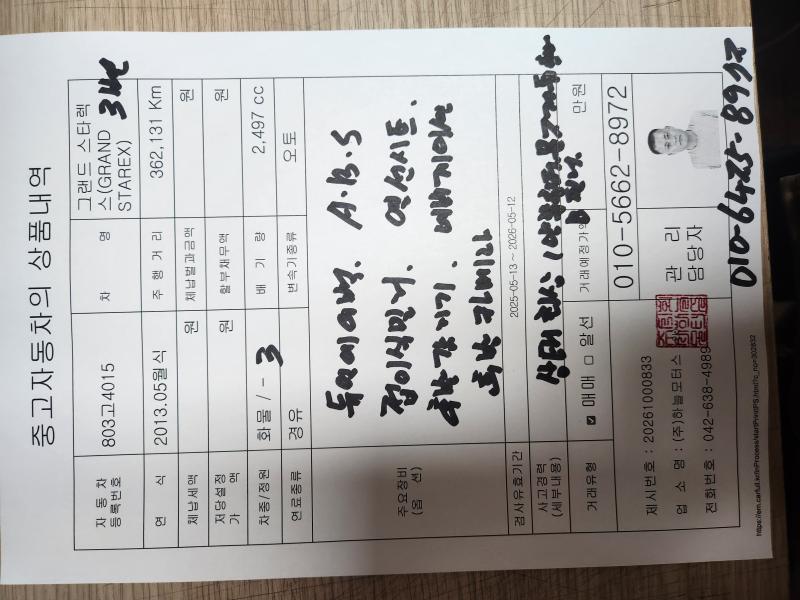 중고자동차의 상품내역
자동차 등록번호 803고4015 차 명 그랜드 스타렉스(GRAND STAREX) 3밴
연 식 2013.05월식 주행거리 362,131 Km
체납세액 원 체납벌과금액 원
저당설정가액 원 할부채무액 원
차종/정원 화물 / - 3 배 기 량 2,497 cc
연료종류 경유 변속기종류 오토
주요장비 (옵 션)
듀얼에어백. A.B.S
접이식밀러. 열선시트.
후방감지기. 네비게이션
후방 카메라
검사유효기간 2025-05-13 ~ 2026-05-12
사고경력 (세부내용)
거래유형 ☑ 매매 □ 알선 거래예정가액 만원
제시번호 : 20261000833
업 소 명 : (주)하늘모터스
전화번호 : 042-638-4989
관 리 담당자
010-5662-8972
010-6425-8972
https://em.carfull.kr/InProcess/startPrintPS.html?c_no=302832